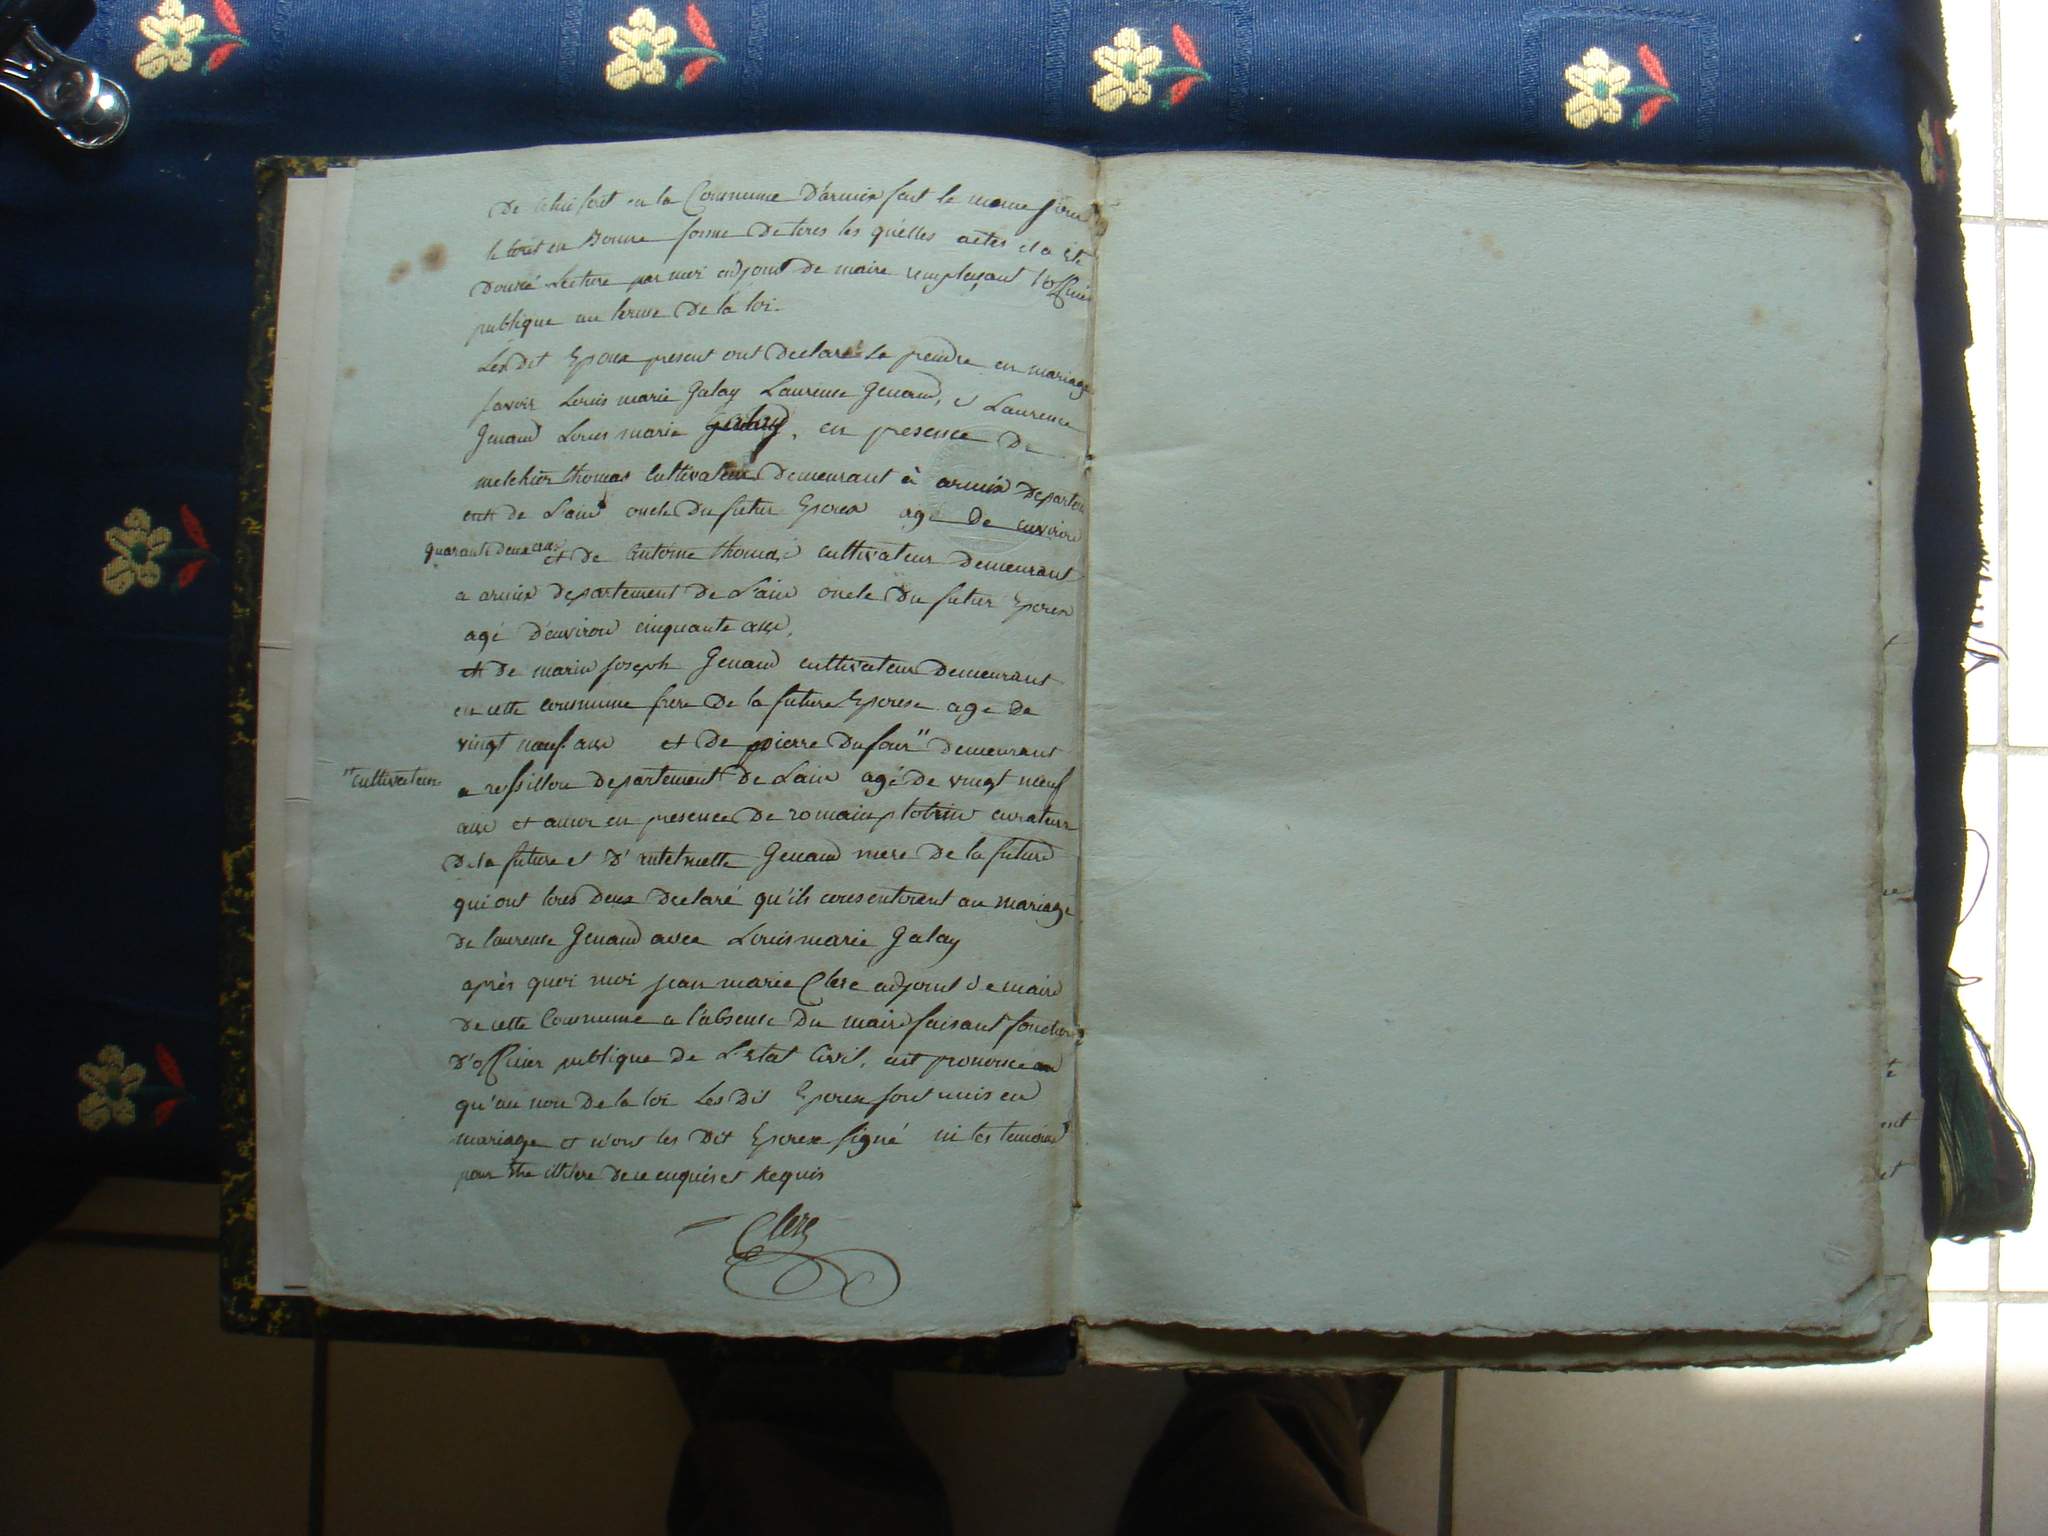 De   fait en la Commune D'armix fait le meme jour
le tout en Bonne forme De tores les quélles actes il a eté
Donné Lecture par moi adjoint De maire remplaçant l'officier
publique au terme De la loi.
Les Dit Epoux present ont Declaré se prendre en mariage
savoir Louis marie Galay Laurence Genand, et Laurence
Genand Louis marie Galay, en presence De
melchior thomas Cultivateur Demeurant à armix Departem
ent de L'ain oncle Du futur Epoux agé De environ
quarante deux ans
et de Antoine thomas cultivateur Demeurant
a armix departement De L'ain oncle Du futur Epoux
agé D'environ cinquante ans,
et De marin Joseph Genand cultivateur Demeurant
en cette commune frere De la future Epouse age De
vingt neuf ans et De pierre Dufour " Demeurant
" cultivateur
a rossillon departement De Lain agé De vingt neuf
ans et aussi en presence De romain curateur
De la future et D' Genand mere De la future
qui ont tous Deux Declaré qu'ils consentoient au mariage
De laurence Genand avec Louis marie Galay
après quoi moi jean marie Clerc adjoint De maire
De cette Commune a l'absense Du maire faisant fonction
D'officier publique De L'Etat Civil, ait prononce
qu'au nom De la loi Les Dit Epoux sont unis en
mariage et n'ont les Dit Epoux signé ni les temoins
pour Etre illitere De ce enquis et Requis
Clerc